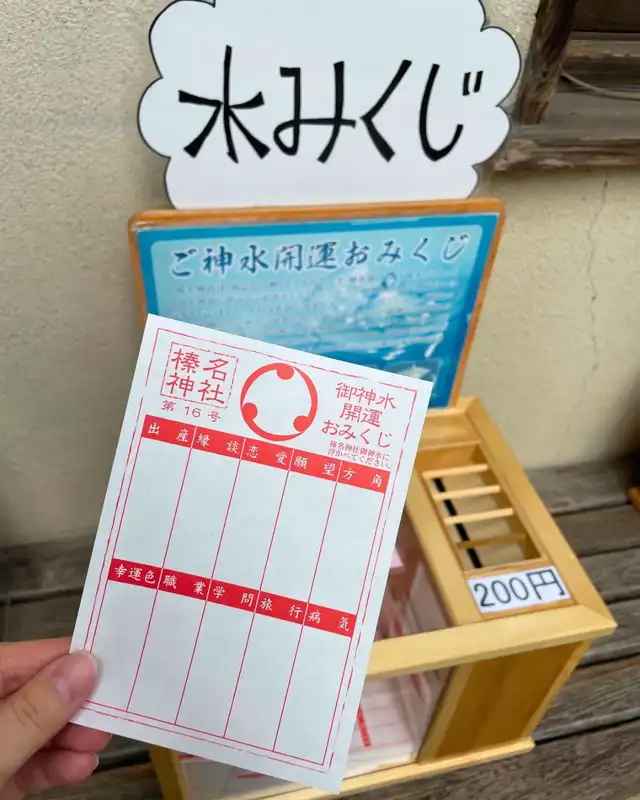 水みくじ
ご神水開運おみくじ
榛名
神社
第16号
御神水
開運
おみくじ
榛名神社御神水に
浮かべてください。
出産 縁談 恋愛 願望 方角
幸運色 職業 学問 旅行 病気
200円